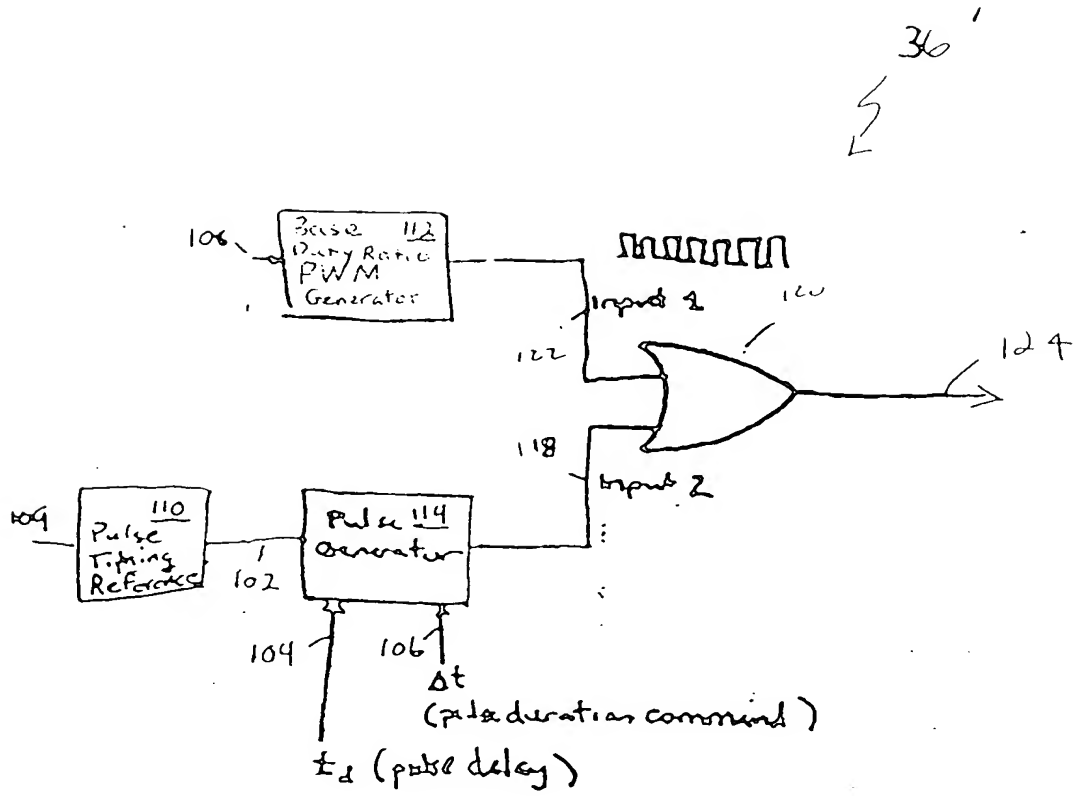 36'
106
Base 112
Duty Ratio
PWM
Generator
Input 1
122
120
124
118
Input 2
109
110
Pulse
Timing
Reference
102
Pulse 114
Generator
104
106
Δt
(pulse duration command)
td (pulse delay)